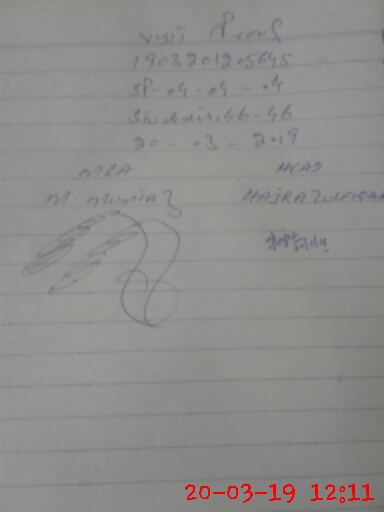 Visit Proof
1903201205645
SP-04-04-04
Students.46-46
20-03-2019
MEA HEAD
M. Mumtaz HAJRA ZULFIQAR
20-03-19 12:11